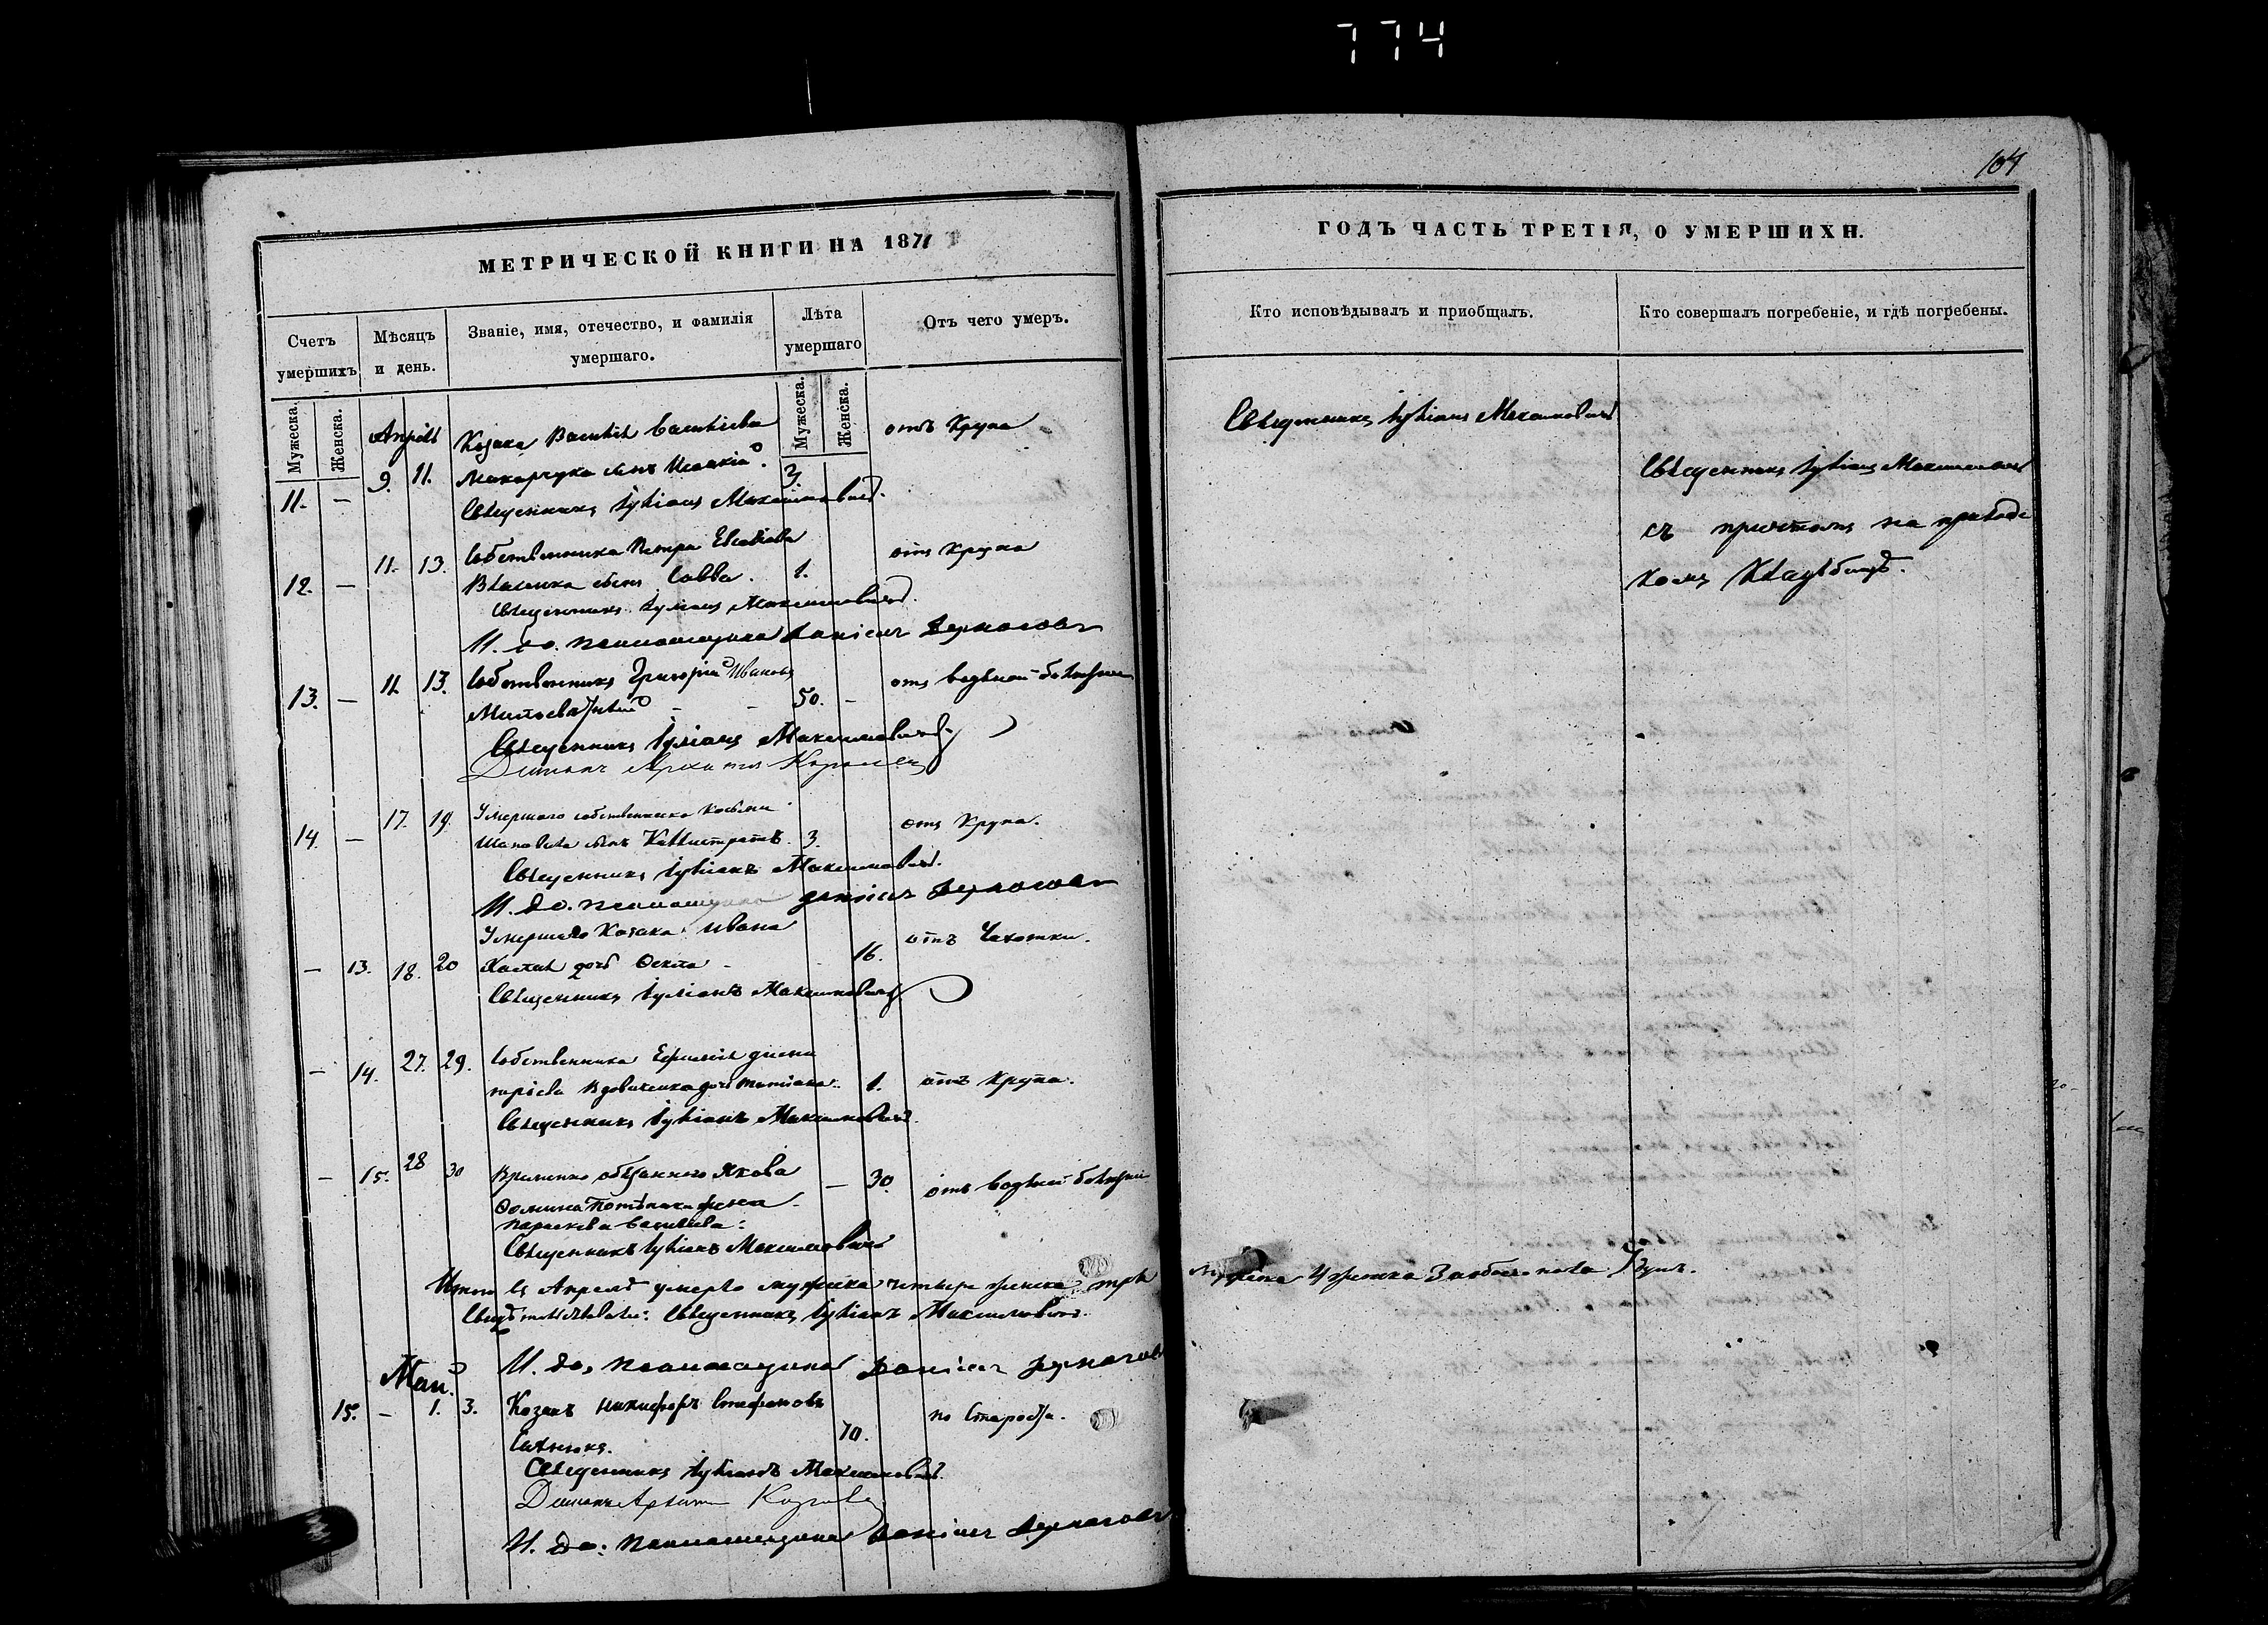 774
104
МЕТРИЧЕСКОЙ КНИГИ НА 1871
ГОДЪ ЧАСТЬ ТРЕТІЯ, О УМЕРШИХЪ.
Счетъ умершихъ
Мѣсяцъ и день.
Званіе, имя, отечество, и фамилія умершаго.
Лѣта умершаго
Отъ чего умеръ.
Кто исповѣдывалъ и приобщалъ.
Кто совершалъ погребеніе, и гдѣ погребены.
Мужеска.
Женска.
Мужеска.
Женска.
Апрѣль
Козака Василія Василіева отъ Крупа
11. — 9. 11. Макарчука сынъ Исаакій. 3.
Священникъ Іуліанъ Максимовичъ.
12. — 11. 13. Собственника Петра
сынъ Савва. 1. отъ Крупа
Священникъ Іуліанъ Максимовичъ.
И. до. псаломщика Даніилъ
13. — 11. 13. Собственникъ Григорій Ивановъ
50. — отъ водяной болѣзни
Священникъ Іуліанъ Максимовичъ
Дьяконъ
14. — 17. 19. Умершаго собственника Космы
Шаповала сынъ Каллистратъ. 3. отъ Крупа.
Священникъ Іуліанъ Максимовичъ.
И. до. псаломщика Даніилъ
Умершаго Козака Ивана
— 13. 18. 20 дочь Фекла — 16. отъ Чахотки.
Священникъ Іуліанъ Максимовичъ
— 14. 27. 29. Собственника Ефимія Дими
тріева Вдовиченка дочь Татіана. 1. отъ Крупа.
Священникъ Іуліанъ Максимовичъ.
— 15. 28 30 Временно обязаннаго Якова
Фомина жена — 30. отъ водяной болѣзни
Параскева Василіева.
Священникъ Іуліанъ Максимовичъ
Итого въ Апрелѣ умерло мужеска четыре женска три
мужеска 4 женска 3 обоего пола 7 душъ.
Священникъ Іуліанъ Максимовичъ.
И. до. псаломщика Даніилъ
Май.
15. — 1. 3. Козакъ Никифоръ Стефановъ
70. по Старости.
Священникъ Іуліанъ Максимовичъ.
Дьяконъ
И. до. псаломщика Даніилъ
Священникъ Іуліанъ Максимовичъ
Священникъ Іуліанъ Максимовичъ
съ причтомъ на приходс
комъ Кладбищѣ.